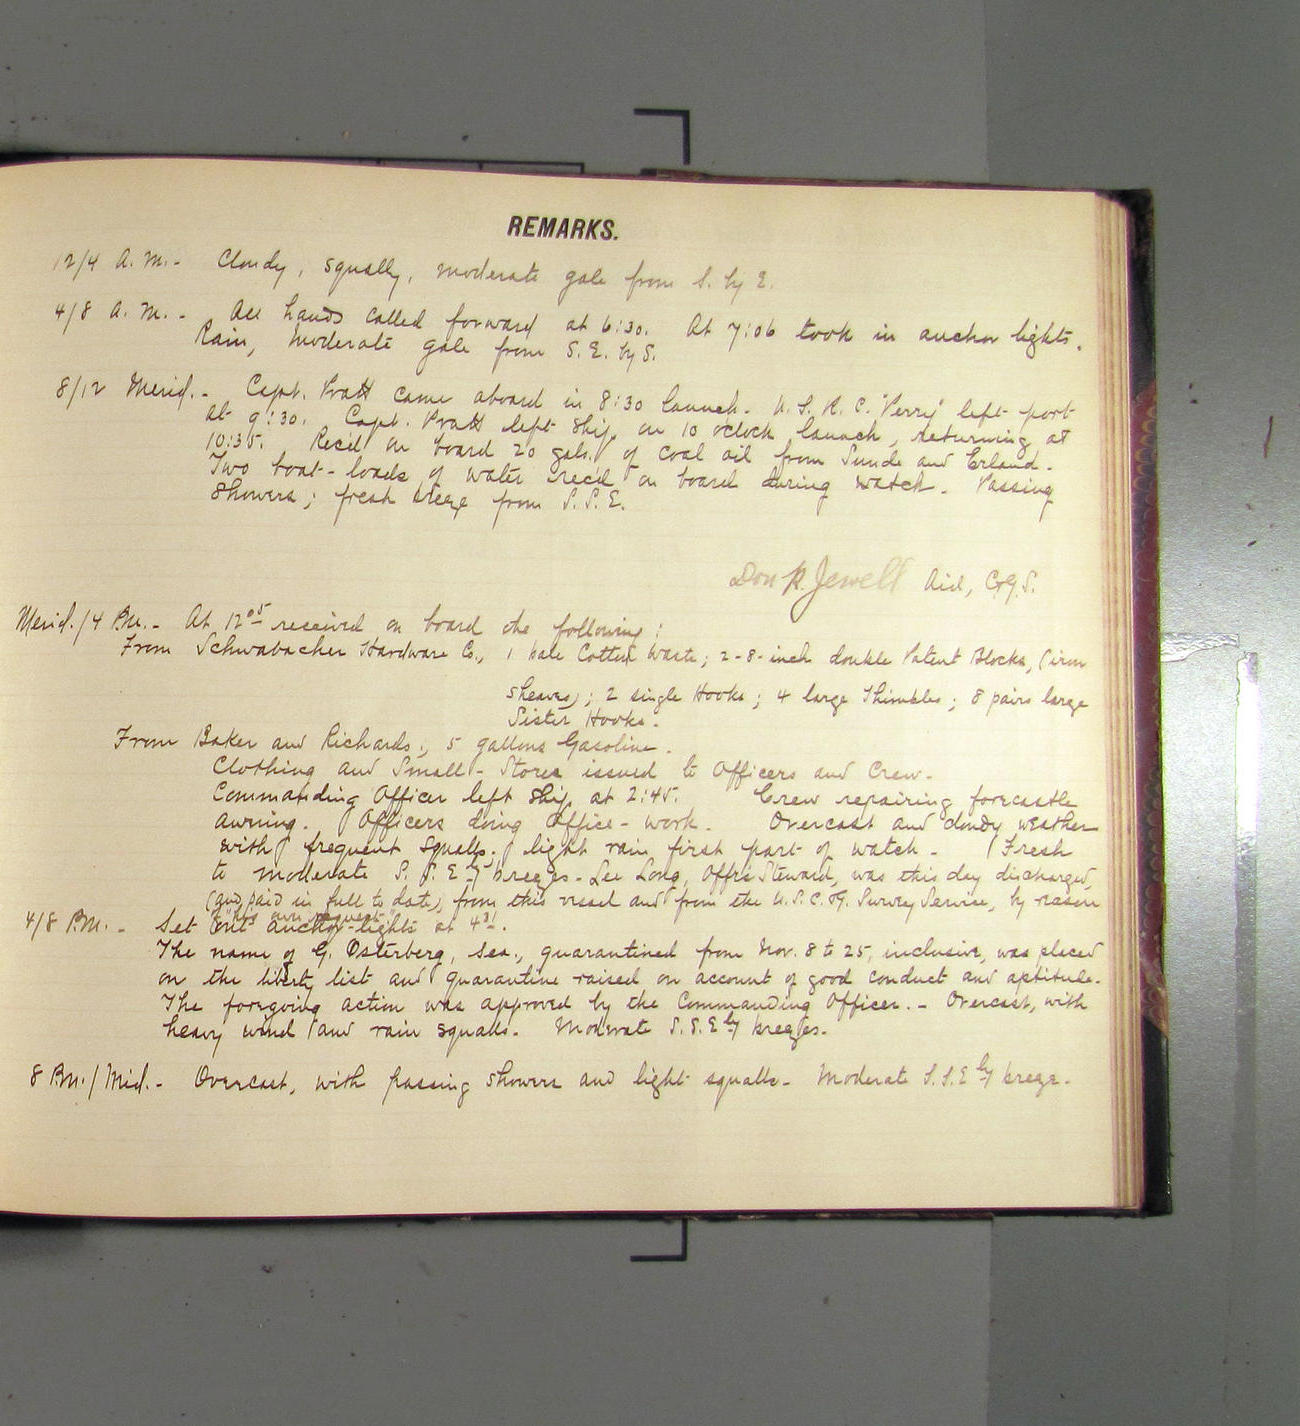 REMARKS.
12/4 A.M.- Cloudy, squally, moderate gale from S. by E.
4/8 A.M.- All hands called forward at 6:30. At 7:06 took in anchor lights.
Rain, moderate gale from S.E. by S.
8/12 Merid.- Capt. Pratt came aboard in 8:30 launch. U.S.R.C. "Perry" left port
at 9:30. Capt. Pratt left ship on 10 o'clock launch, returning at
10:35. Rec'd on board 20 gals. of coal oil from Sunde and Erland.
Two boat-loads of water rec'd on board during watch. Passing
showers; fresh breeze from S.S.E.
Don R. Jewell Aid, C&G.S.
Merid./4 P.M.- At 12 05 received on board the following:
From Schwabacher Hardware Co., 1 bale Cotton Waste; 2-8-inch double Patent Blocks, (iron
sheaves); 2 single Hooks; 4 large Thimbles; 8 pairs large
Sister Hooks.
From Baker and Richards, 5 gallons Gasoline.
Clothing and Small-Stores issued to Officers and Crew.
Commanding Officer left ship at 2:45. Crew repairing forecastle
awning. Officers doing Office-work. Overcast and cloudy weather
with frequent squalls; light rain first part of watch. Fresh
to moderate S.S.E'ly breezes. Lee Long, Offrs Steward, was this day discharged,
(and paid in full to date), from this vessel and from the U.S.C.&G. Survey Service, by reason
of his own request.
4/8 P.M.- Set out anchor-lights at 4 31.
The name of G. Osterberg, Sea., quarantined from Nov. 8 to 25, inclusive, was placed
on the liberty list and quarantine raised on account of good conduct and aptitude.
The foregoing action was approved by the Commanding Officer.- Overcast, with
heavy wind and rain squalls. Moderate S.S.E'ly breezes.
8 P.M./Mid.- Overcast, with passing showers and light squalls. Moderate S.S.E'ly breeze.